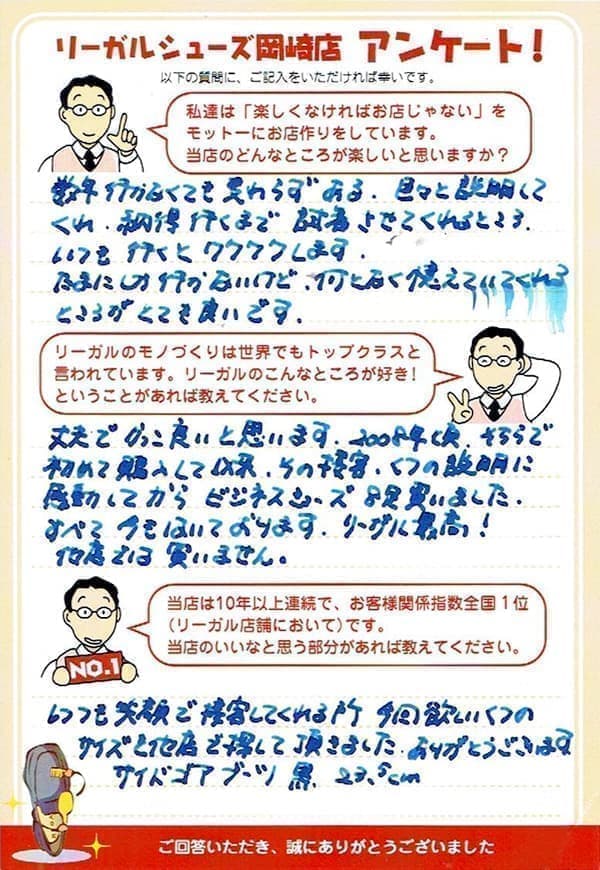 リーガルシューズ岡崎店 アンケート!
以下の質問に、ご記入をいただければ幸いです。
私達は「楽しくなければお店じゃない」を
モットーにお店作りをしています。
当店のどんなところが楽しいと思いますか?
数年行かなくても変わらずある。色々と説明して
くれ、納得行くまで試着させてくれるところ。
いつも行くとワクワクします。
たまにしか行かないけど、何となく憶えていてくれる
ところがとても良いです。
リーガルのモノづくりは世界でもトップクラスと
言われています。リーガルのこんなところが好き!
ということがあれば教えてください。
丈夫でかっこ良いと思います。2008年頃、そちらで
初めて購入して以来、その接客、くつの説明に
感動してから ビジネスシューズ 8足買いました。
すべて今もはいております。リーガル最高!
他店では買いません。
当店は10年以上連続で、お客様関係指数全国1位
(リーガル店舗において)です。
当店のいいなと思う部分があれば教えてください。
NO.1
いつも笑顔で接客してくれる所 今回欲しいくつの
サイズを他店で探して頂きました。ありがとうございます
サイドゴアブーツ 黒 23.5cm
ご回答いただき、誠にありがとうございました